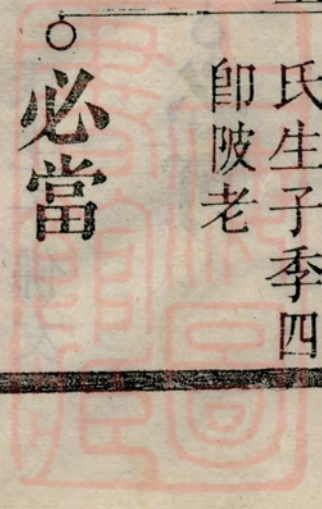 氏生子季四
卽陂老
必當